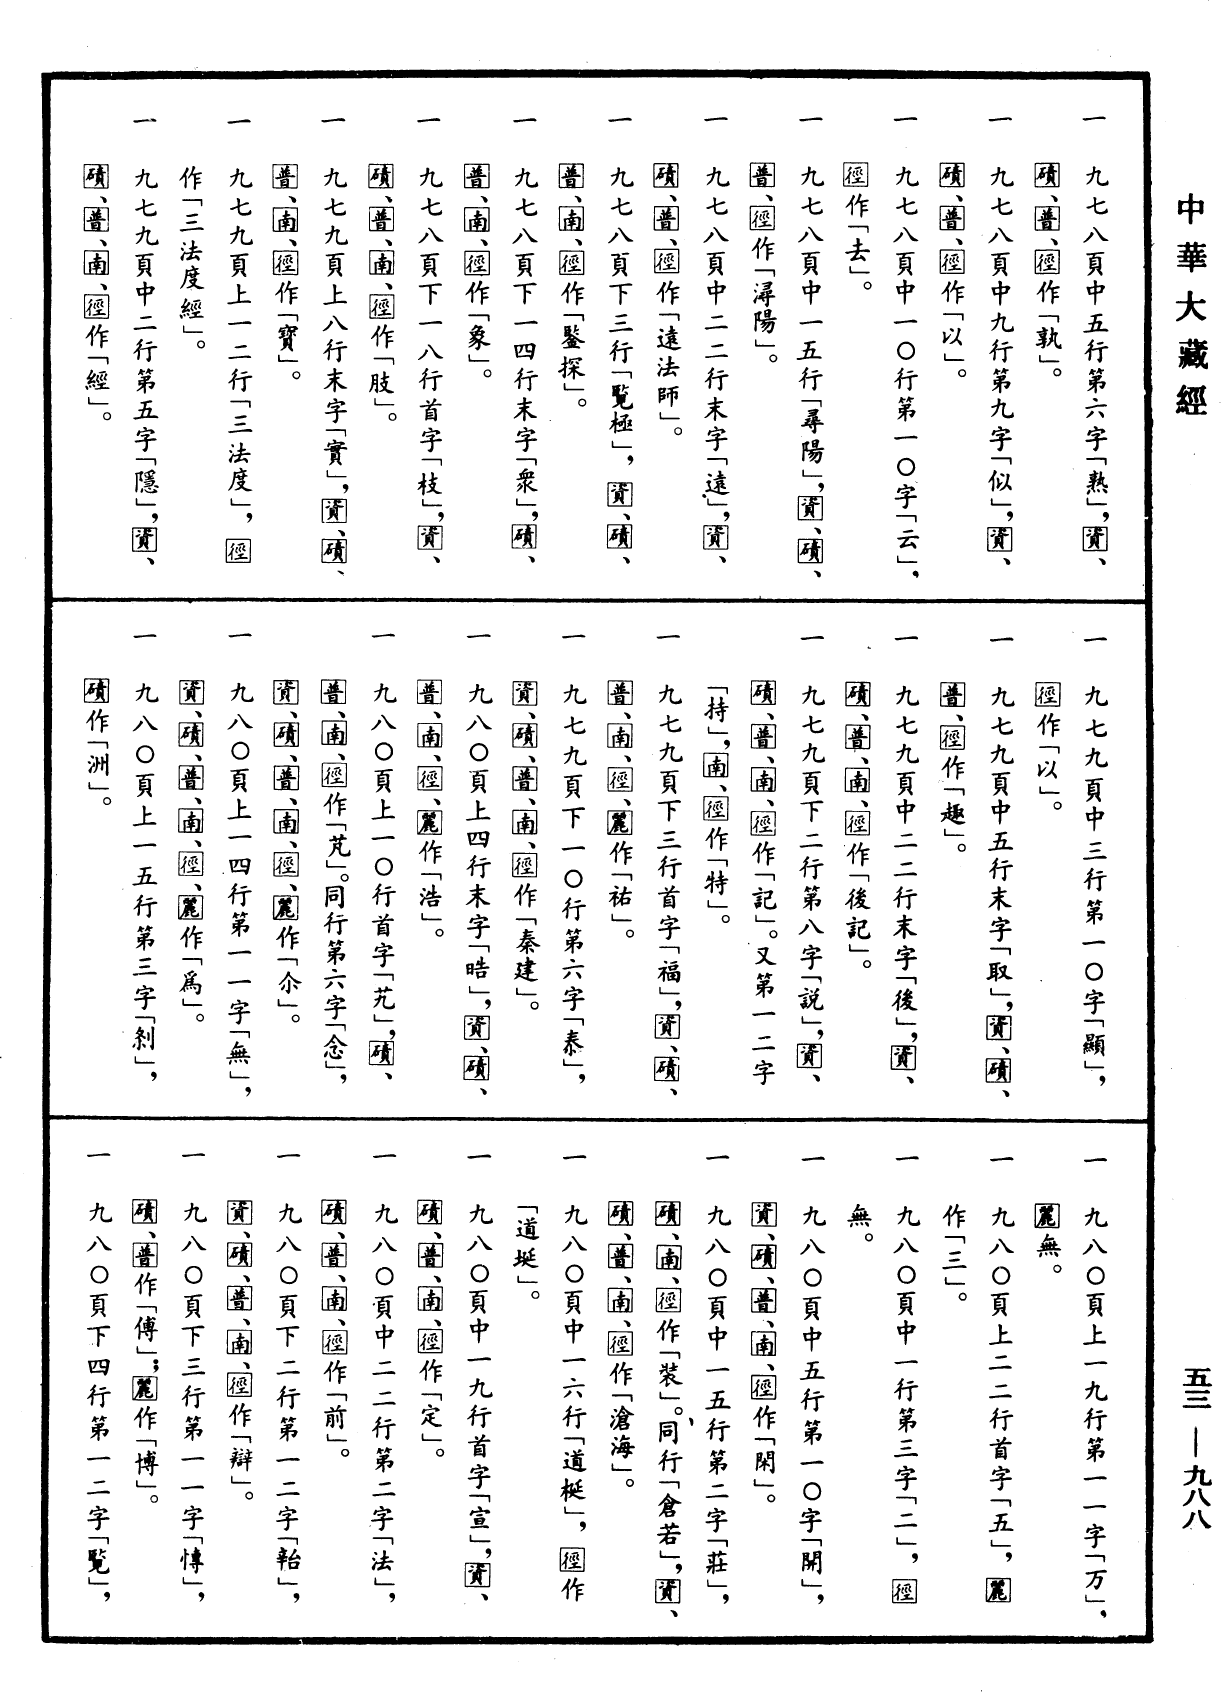 中華大藏經
五三—九八八
一 九七八頁中五行第六字「熟」，資、
磧、普、徑作「孰」。
一 九七八頁中九行第九字「似」，資、
磧、普、徑作「以」。
一 九七八頁中一〇行第一〇字「云」，
徑作「去」。
一 九七八頁中一五行「尋陽」，資、磧、
普、徑作「潯陽」。
一 九七八頁中二二行末字「遠」，資、
磧、普、徑作「遠法師」。
一 九七八頁下三行「覧極」，資、磧、
普、南、徑作「鑒探」。
一 九七八頁下一四行末字「衆」，磧、
普、南、徑作「象」。
一 九七八頁下一八行首字「枝」，資、
磧、普、南、徑作「肢」。
一 九七九頁上八行末字「實」，資、磧、
普、南、徑作「寶」。
一 九七九頁上一二行「三法度」，徑
作「三法度經」。
一 九七九頁中二行第五字「隱」，資、
磧、普、南、徑作「經」。
一 九七九頁中三行第一〇字「顯」，
徑作「以」。
一 九七九頁中五行末字「取」，資、磧、
普、徑作「趣」。
一 九七九頁中二二行末字「後」，資、
磧、普、南、徑作「後記」。
一 九七九頁下二行第八字「説」，資、
磧、普、南、徑作「記」。又第一二字
「持」，南、徑作「特」。
一 九七九頁下三行首字「福」，資、磧、
普、南、徑、麗作「祐」。
一 九七九頁下一〇行第六字「泰」，
資、磧、普、南、徑作「秦建」。
一 九八〇頁上四行末字「晧」，資、磧、
普、南、徑、麗作「浩」。
一 九八〇頁上一〇行首字「艽」，磧、
普、南、徑作「芃」。同行第六字「念」，
資、磧、普、南、徑、麗作「尒」。
一 九八〇頁上一四行第一一字「無」，
資、磧、普、南、徑、麗作「爲」。
一 九八〇頁上一五行第三字「剎」，
磧作「洲」。
一 九八〇頁上一九行第一一字「万」，
麗無。
一 九八〇頁上二二行首字「五」，麗
作「三」。
一 九八〇頁中一行第三字「二」，徑
無。
一 九八〇頁中五行第一〇字「開」，
資、磧、普、南、徑作「閑」。
一 九八〇頁中一五行第二字「莊」，
磧、南、徑作「装」。同行「倉若」，資、
磧、普、南、徑作「滄海」。
一 九八〇頁中一六行「道梴」，徑作
「道埏」。
一 九八〇頁中一九行首字「宣」，資、
磧、普、南、徑作「定」。
一 九八〇頁中二二行第二字「法」，
磧、普、南、徑作「前」。
一 九八〇頁下二行第一二字「䛐」，
資、磧、普、南、徑作「辯」。
一 九八〇頁下三行第一一字「愽」，
磧、普作「傅」；麗作「博」。
一 九八〇頁下四行第一二字「覧」，